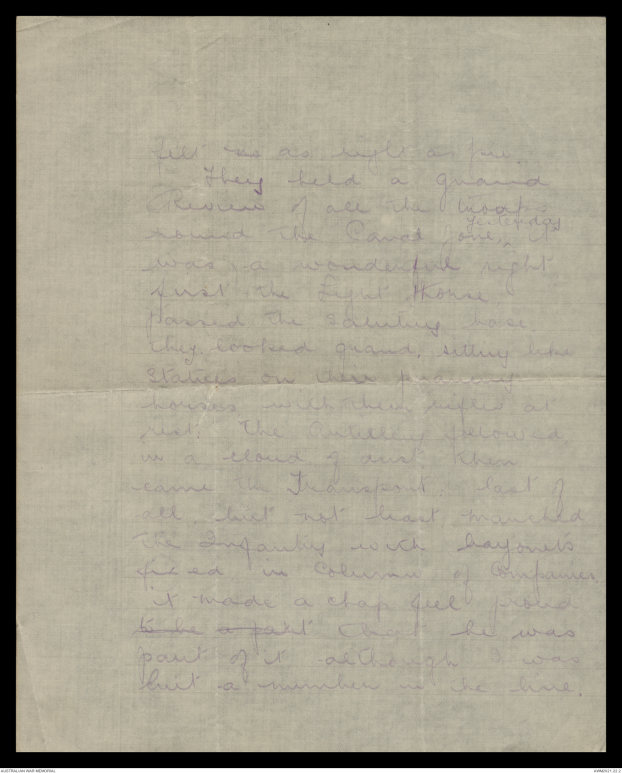 felt as right as pie.
They held a grand
Review of all the troops
yesterday
round the Canal Zone, it
was a wonderful sight
first the Light Horse
passed the saluting base
they looked grand, sitting like
Statues on their prancing
horses with their rifles at
rest. The Artillery followed,
in a cloud of dust, then
came the Transport, last of
all, but not least marched
the Infantry with bayonets
fixed in Column of Companies,
it made a chap feel proud
to be a part that he was
part of it although I was
but a number in the line.
AUSTRALIAN WAR MEMORIAL